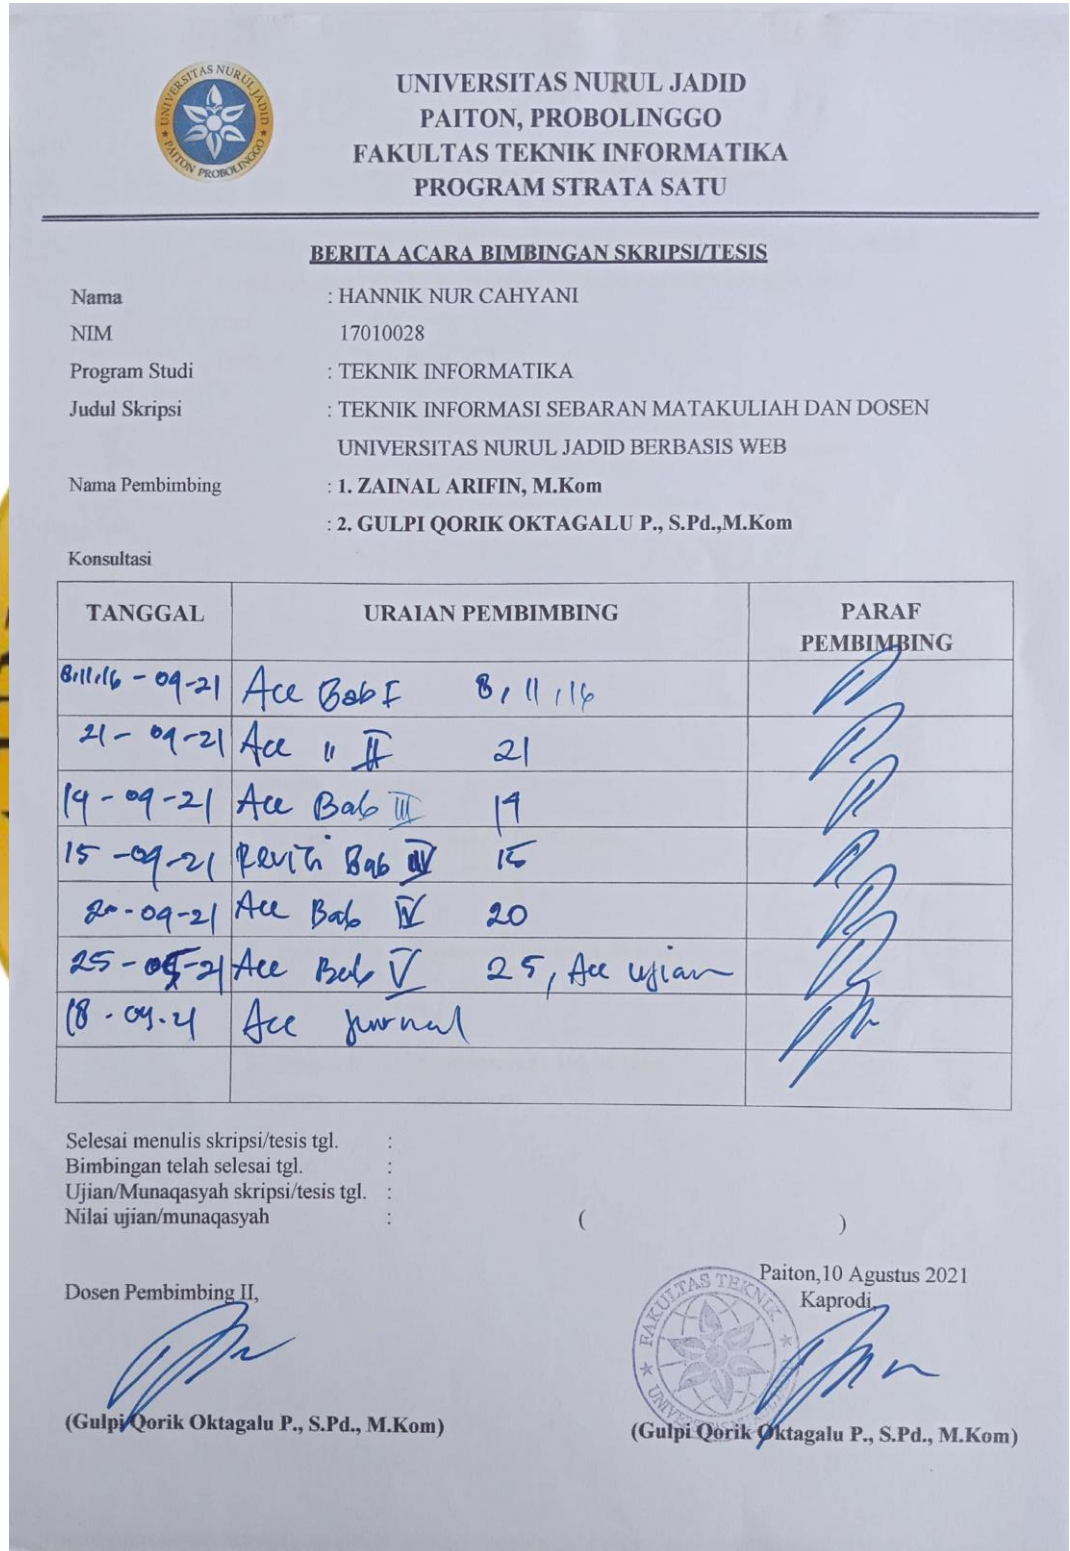 UNIVERSITAS NURUL JADID
PAITON PROBOLINGGO
UNIVERSITAS NURUL JADID
PAITON, PROBOLINGGO
FAKULTAS TEKNIK INFORMATIKA
PROGRAM STRATA SATU
BERITA ACARA BIMBINGAN SKRIPSI/TESIS
Nama : HANNIK NUR CAHYANI
NIM 17010028
Program Studi : TEKNIK INFORMATIKA
Judul Skripsi : TEKNIK INFORMASI SEBARAN MATAKULIAH DAN DOSEN
UNIVERSITAS NURUL JADID BERBASIS WEB
Nama Pembimbing : 1. ZAINAL ARIFIN, M.Kom
: 2. GULPI QORIK OKTAGALU P., S.Pd.,M.Kom
Konsultasi
TANGGAL URAIAN PEMBIMBING PARAF
PEMBIMBING
8,11,16 - 09-21 Acc Bab I 8, 11, 16
21 - 09-21 Acc " II 21
14 - 09-21 Acc Bab III 14
15 - 09-21 Revisi Bab IV 15
20 - 09-21 Acc Bab IV 20
25 - -21 Acc Bab V 25, Acc ujian
18 - 09-21 Acc jurnal
Selesai menulis skripsi/tesis tgl. :
Bimbingan telah selesai tgl. :
Ujian/Munaqasyah skripsi/tesis tgl. :
Nilai ujian/munaqasyah : ( )
Paiton,10 Agustus 2021
Dosen Pembimbing II, Kaprodi,
FAKULTAS TEKNIK
(Gulpi Qorik Oktagalu P., S.Pd., M.Kom) (Gulpi Qorik Oktagalu P., S.Pd., M.Kom)